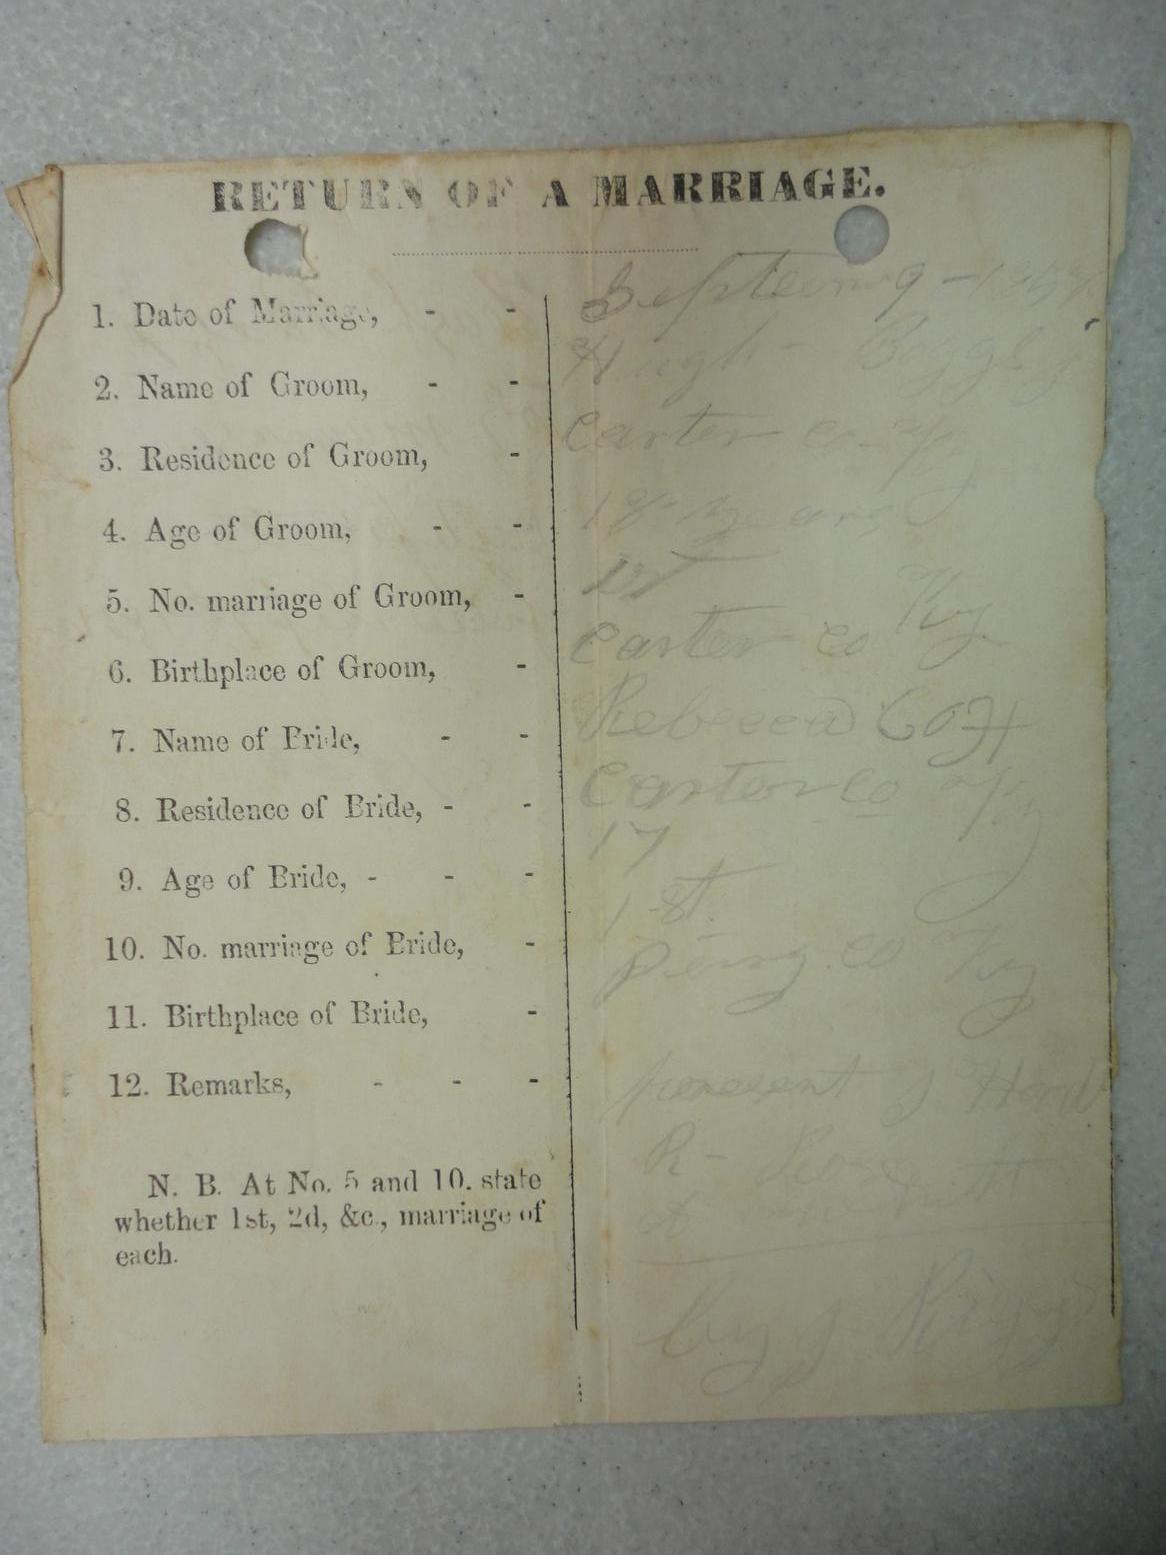 RETURN OF A MARRIAGE.
1. Date of Marriage, - - Septem 9 -
2. Name of Groom, - - Hugh Boggs
3. Residence of Groom, - Carter Co Ky
4. Age of Groom, - - years
5. No. marriage of Groom, - 1st
6. Birthplace of Groom, - Carter Co Ky
7. Name of Bride, - - Rebecca
8. Residence of Bride, - - Carter Co Ky
9. Age of Bride, - - - 17
10. No. marriage of Bride, - 1st.
11. Birthplace of Bride, - Co Ky
12. Remarks, - - - present
R-
N. B. At No. 5 and 10. state
whether 1st, 2d, &c., marriage of
each.
by